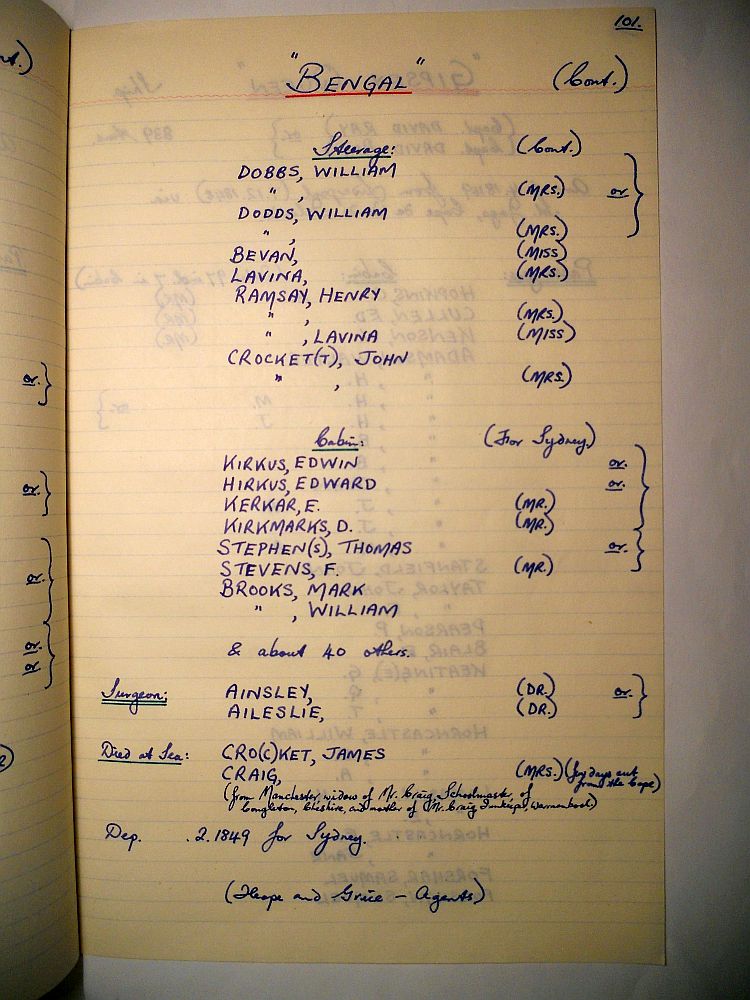 101.
"BENGAL" (Cont.)
Steerage: (Cont.)
DOBBS, WILLIAM
" , (MRS.) or
DODDS, WILLIAM
" , (MRS.)
BEVAN, (MISS)
LAVINA, (MRS.)
RAMSAY, HENRY
" , (MRS.)
" , LAVINA (MISS)
CROCKET(T), JOHN
" , (MRS.)
Cabin: (For Sydney.)
KIRKUS, EDWIN or.
HIRKUS, EDWARD or.
KERKAR, E. (MR.)
KIRKMARKS, D. (MR.)
STEPHEN(S), THOMAS or.
STEVENS, F. (MR.)
BROOKS, MARK
" , WILLIAM
& about 40 others.
Surgeon: AINSLEY, (DR.) or.
AILESLIE, (DR.)
Died at Sea: CRO(C)KET, JAMES
CRAIG, (MRS.) days out from the Cape)
(from Manchester, widow of Mr. Craig, Schoolmaster, of
Congleton, Cheshire, and mother of Mr. Craig Innkeeper, Warrnambool)
Dep. .2.1849 for Sydney.
(Heape and Grice - Agents.)